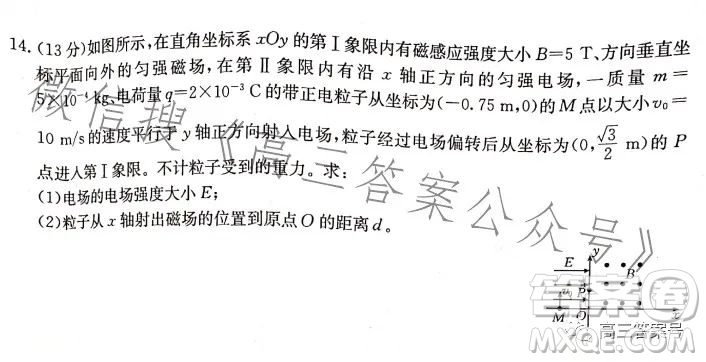 14.(13分)如图所示,在直角坐标系xOy的第Ⅰ象限内有磁感应强度大小B=5 T、方向垂直坐
标平面向外的匀强磁场,在第Ⅱ象限内有沿x轴正方向的匀强电场,一质量m=
5×10⁻ kg、电荷量q=2×10⁻³ C的带正电粒子从坐标为(-0.75 m,0)的M点以大小v₀=
10 m/s的速度平行于y轴正方向射入电场,粒子经过电场偏转后从坐标为(0,√3/2 m)的P
点进入第Ⅰ象限。不计粒子受到的重力。求:
(1)电场的电场强度大小E;
(2)粒子从x轴射出磁场的位置到原点O的距离d。
微信搜《高三答案公众号》
E
y
B
P
v₀
M
O
x
答案卷
高三答案号
MXQE.COM